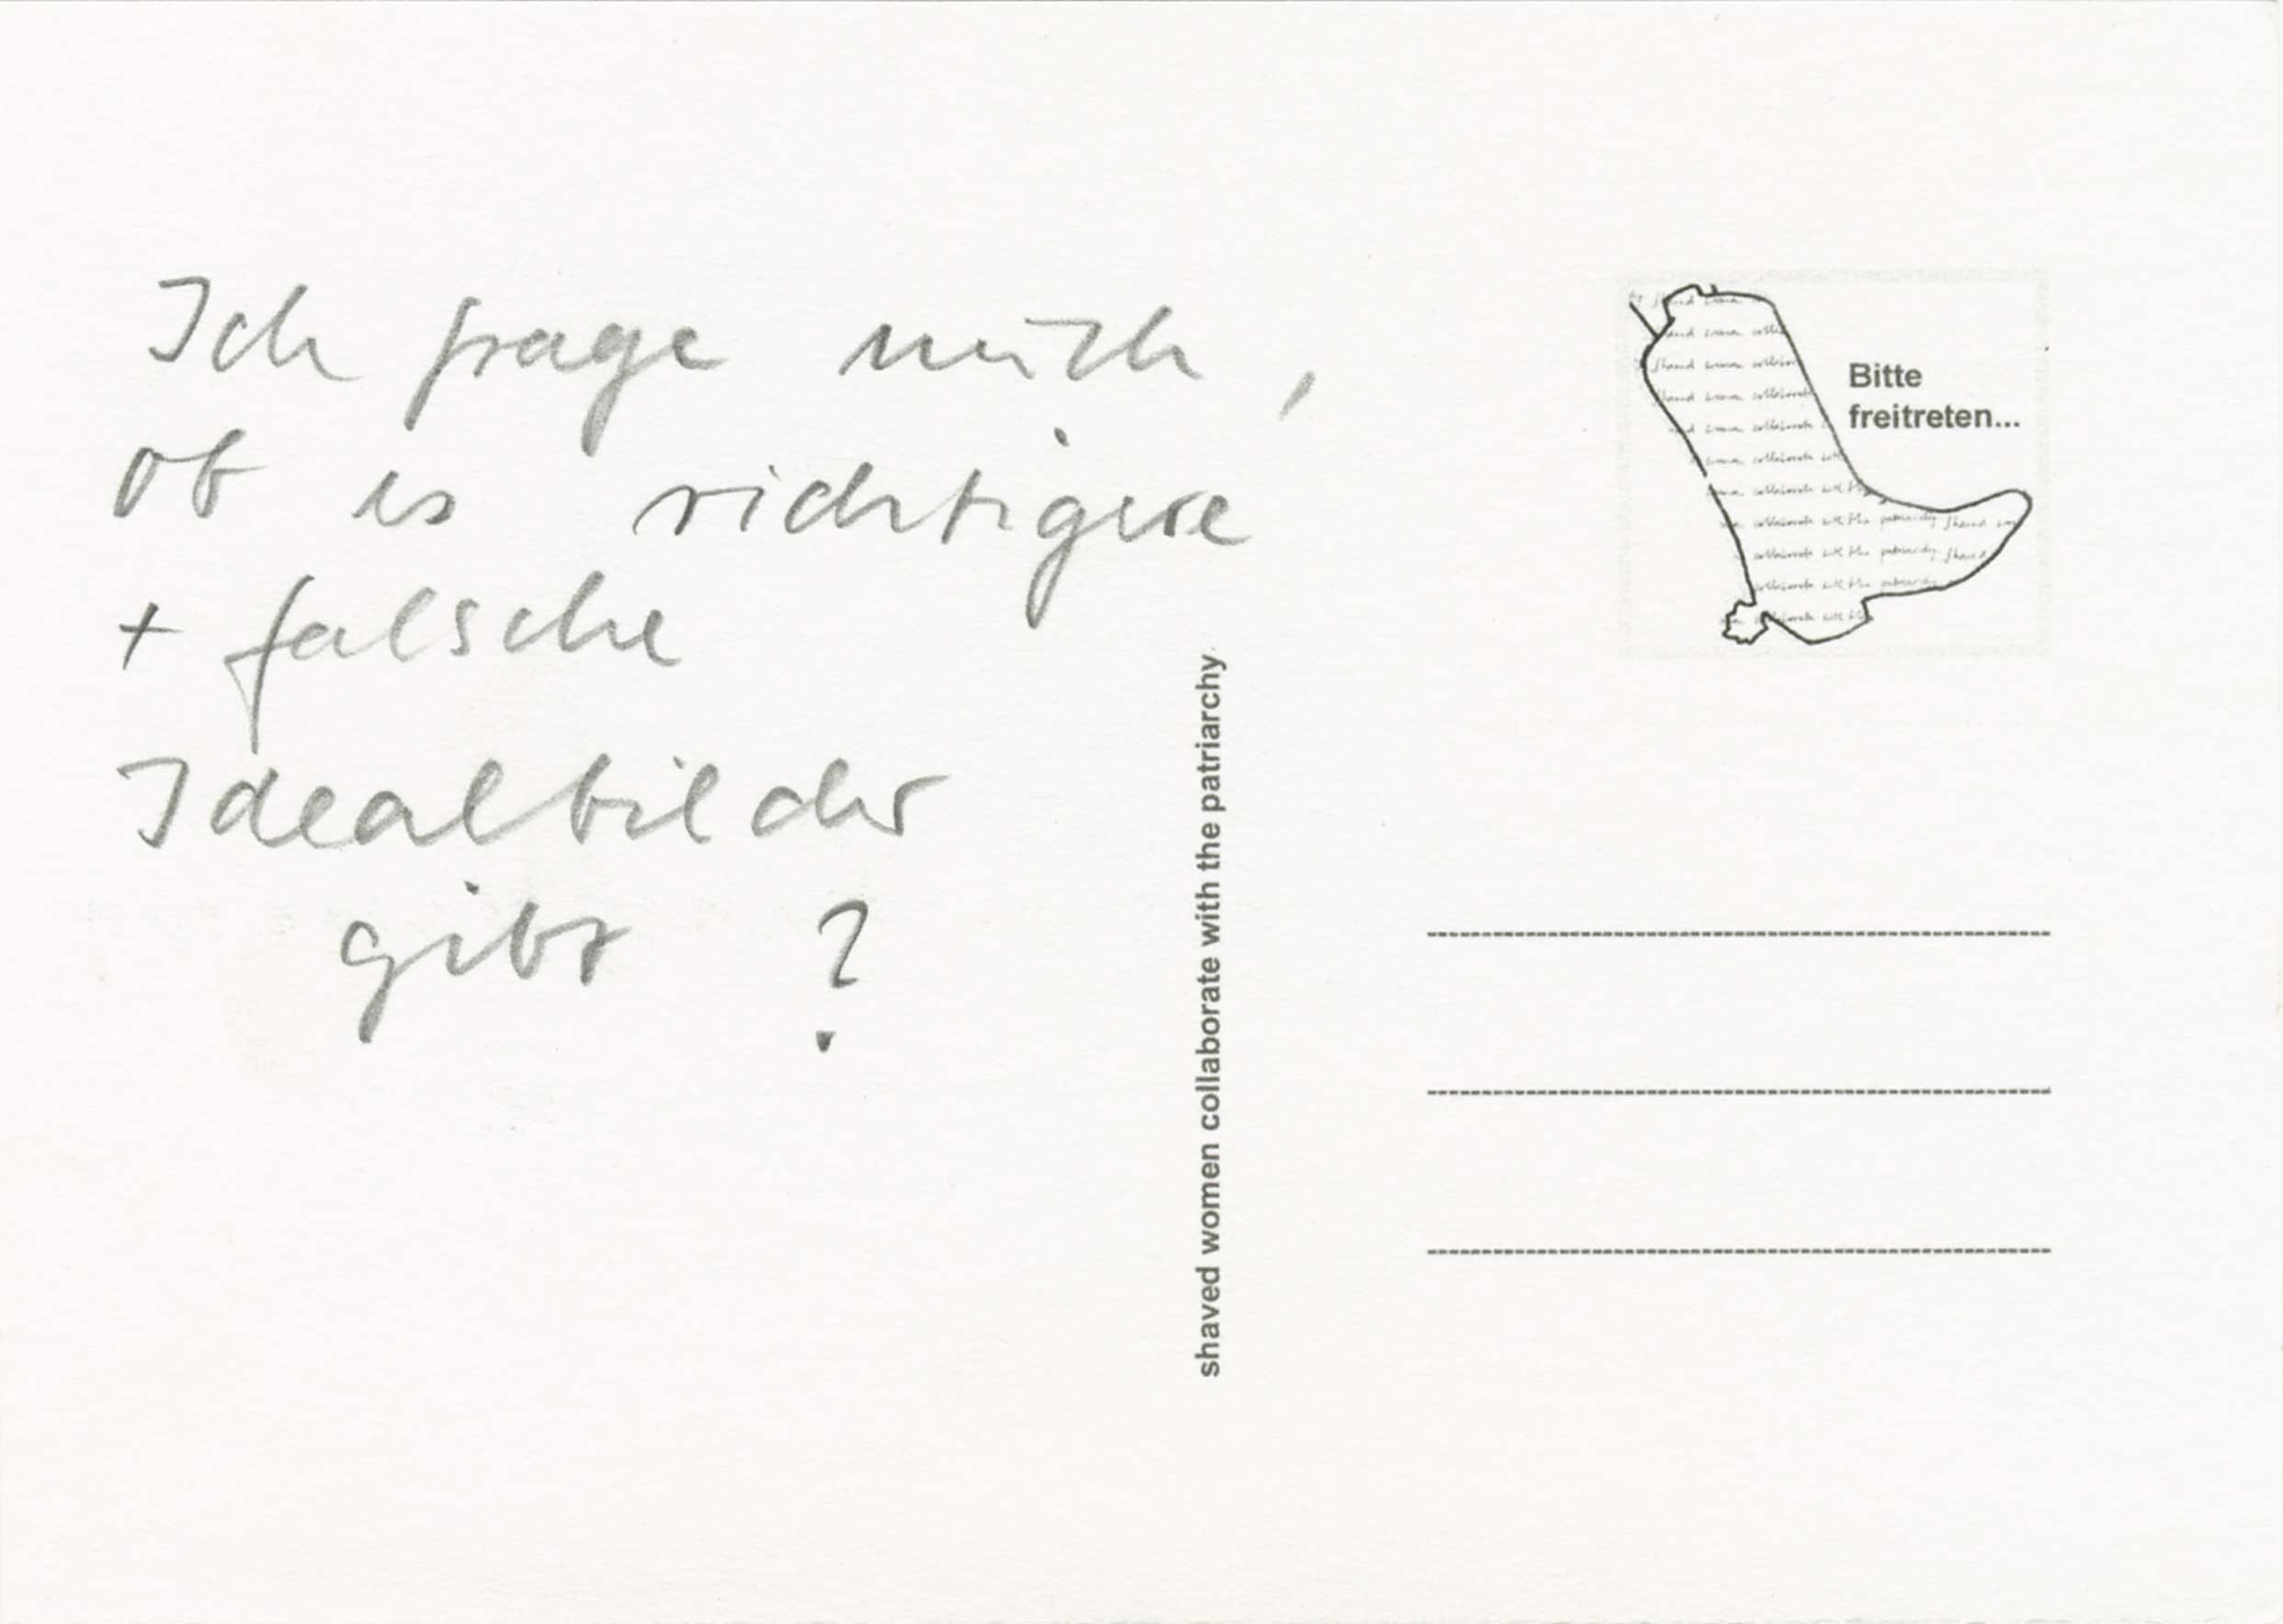 Ich frage mich,
ob es richtigere
+ falsche
Idealbilder
gibt ?
Bitte
freitreten...
shaved women collaborate with the patriarchy
collaborate with the patriarchy shaved
collaborate with the patriarchy shaved
collaborate with the patriarchy